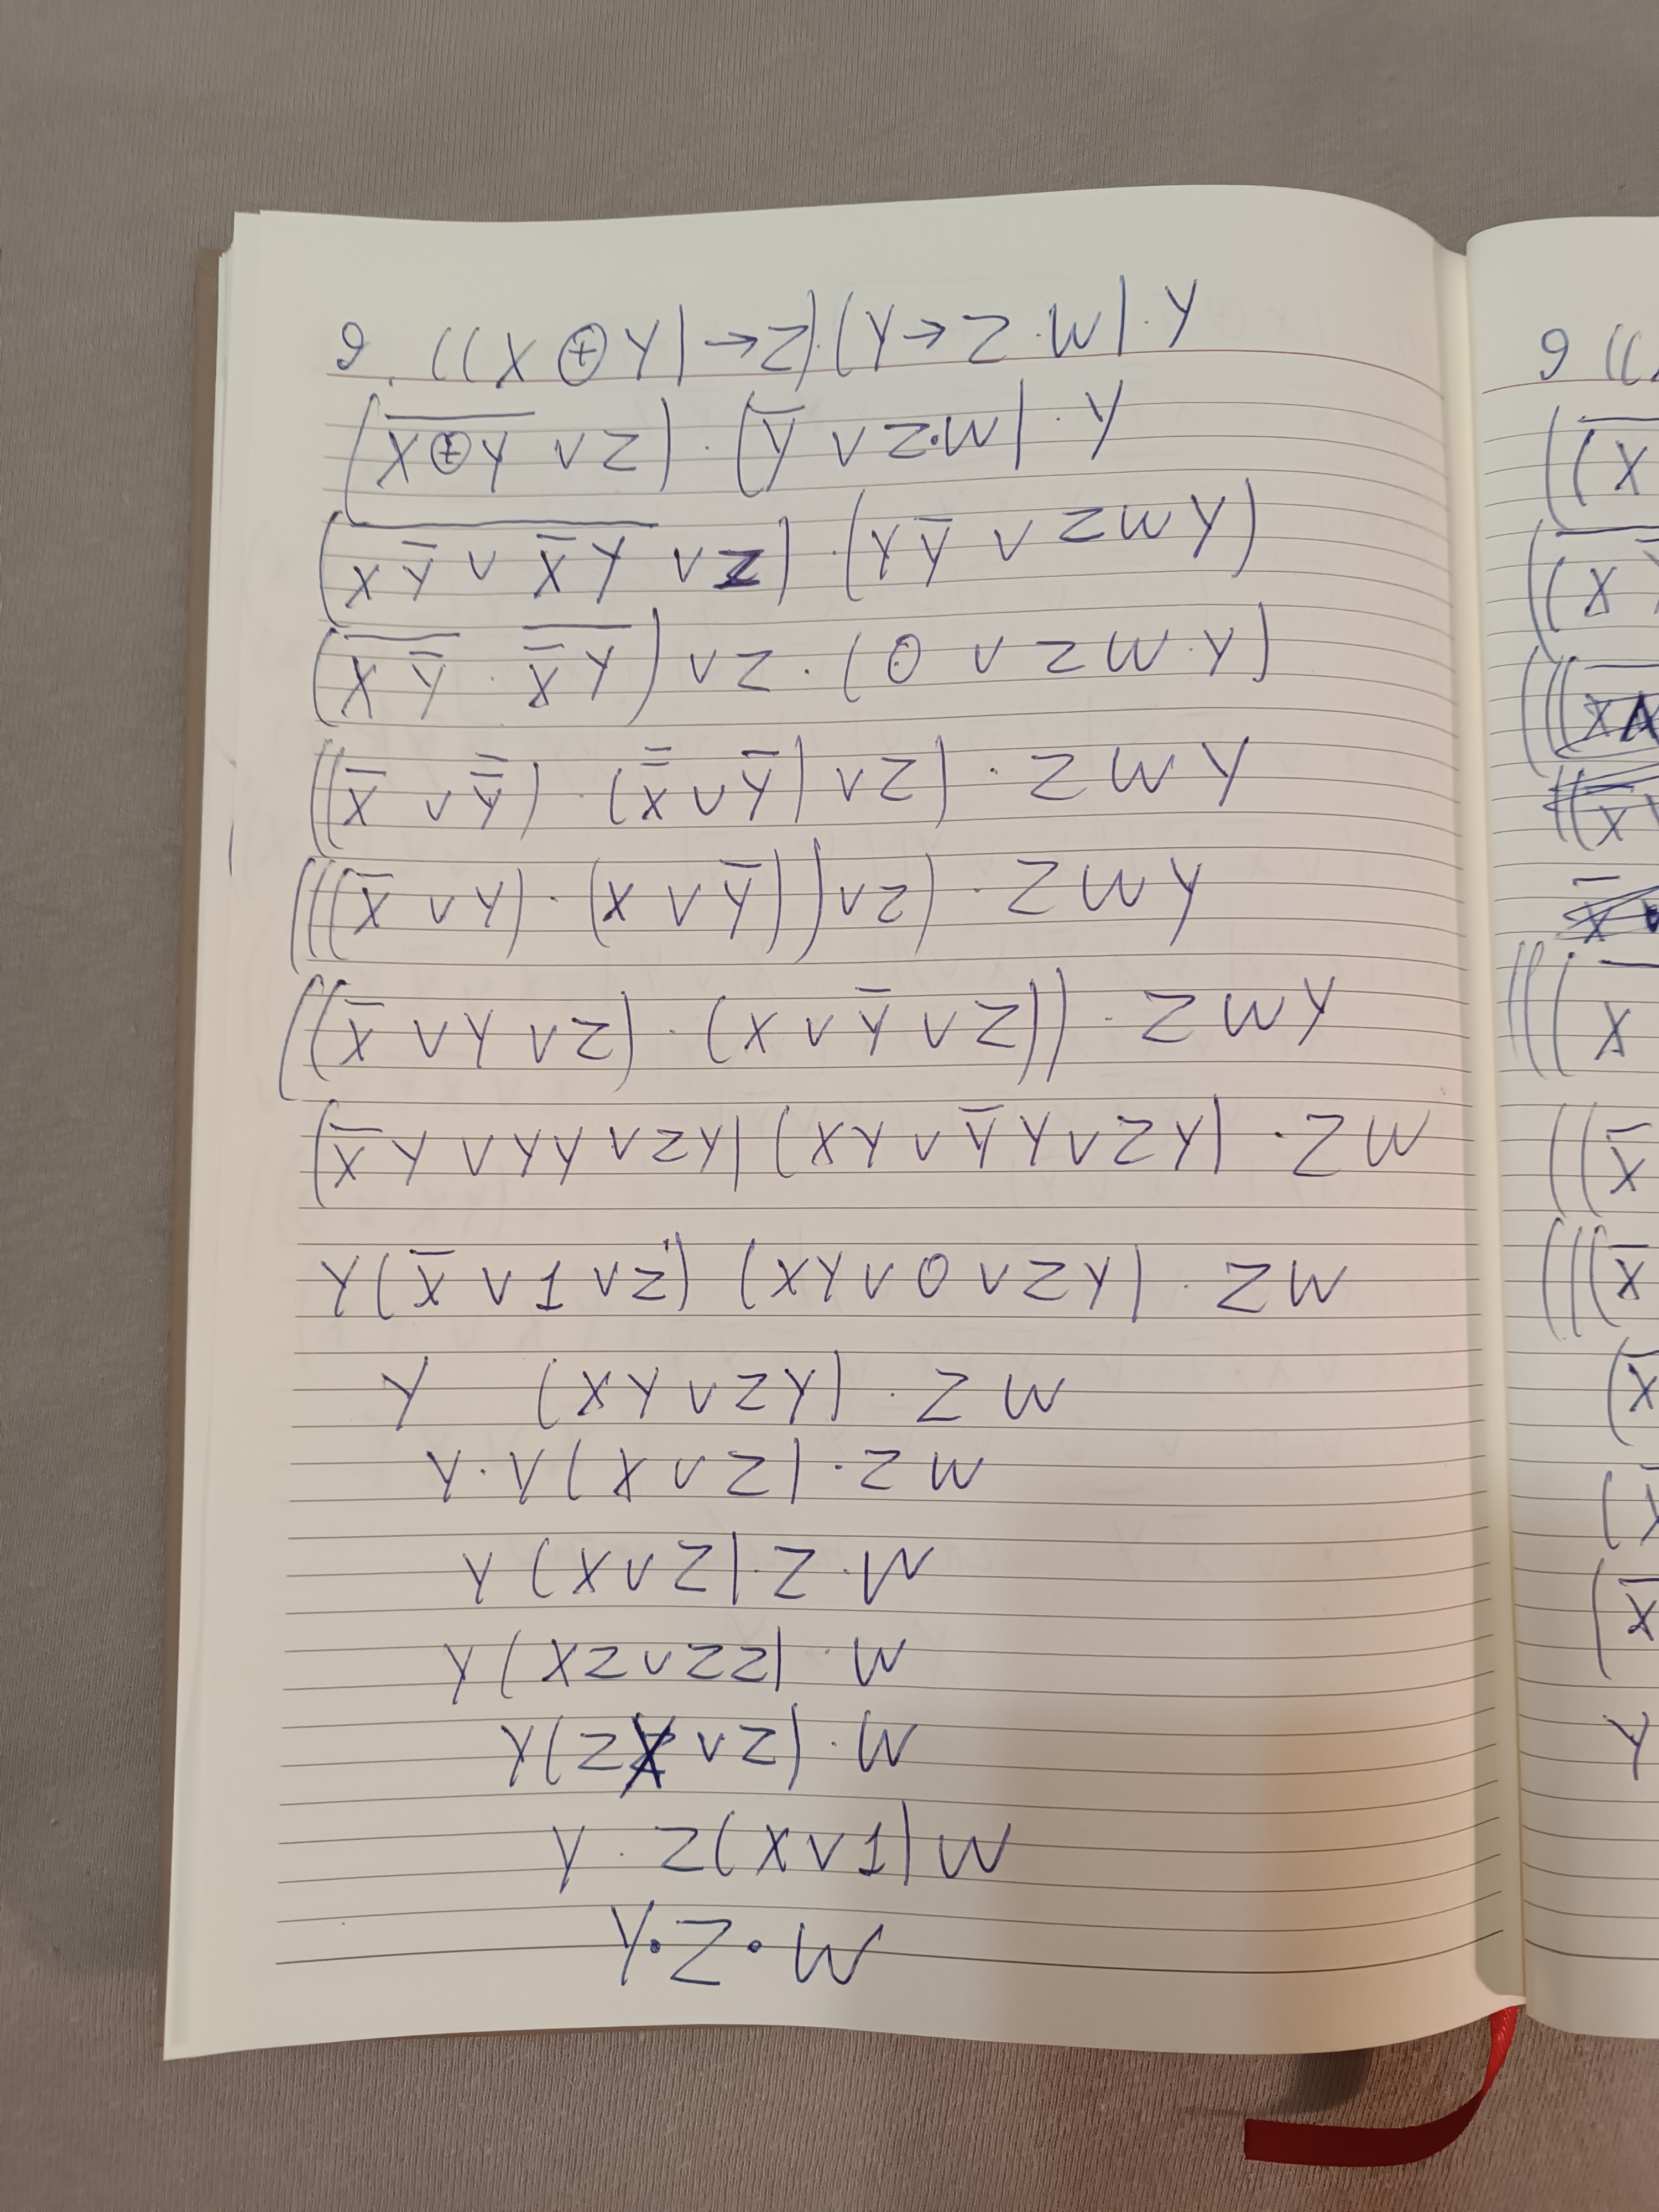 6. ((X ⊕ Y) → Z)·(Y → Z·M)·Y
(X̅ ̅⊕̅ ̅Y̅ ∨ Z)·(Y̅ ∨ Z·M)·Y
(X̅Y̅̅ ̅∨̅ ̅X̅̅Y̅ ∨ Z)·(Y̅Y ∨ ZMY)
(X̅Y̅̅ · X̅̅Y̅) ∨ Z·(0 ∨ ZM·Y)
((X̅ ∨ Y̅̅)·(X̅̅ ∨ Y̅) ∨ Z)·ZMY
(((X̅ ∨ Y)·(X ∨ Y̅)) ∨ Z)·ZMY
((X̅ ∨ Y ∨ Z)·(X ∨ Y̅ ∨ Z))·ZMY
(X̅Y ∨ YY ∨ YZ)(XY ∨ YY̅ ∨ ZY)·ZM
Y(X̅ ∨ 1 ∨ Z)(XY ∨ 0 ∨ ZY)·ZM
Y (XY ∨ ZY)·ZM
Y·Y(X ∨ Z)·ZM
Y(X ∨ Z)·Z·M
Y(XZ ∨ ZZ)·M
Y(ZX ∨ Z)·M
Y·Z(X ∨ 1)M
Y·Z·M